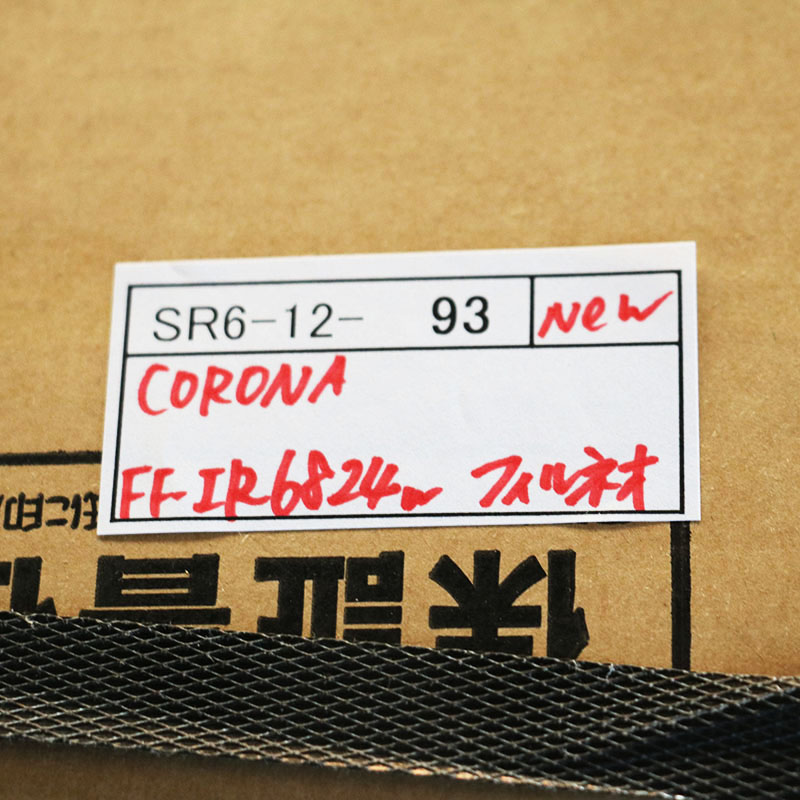 SR6-12- 93 New
CORONA
FF-IR6824w フィルネオ
保証書